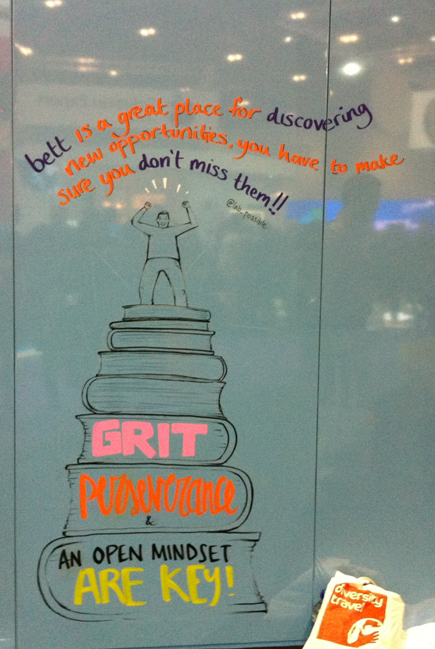 bett is a great place for discovering
new opportunities, you have to make
sure you don't miss them!!
GRIT
Perseverance
&
AN OPEN MINDSET
ARE KEY!
diversity
travel